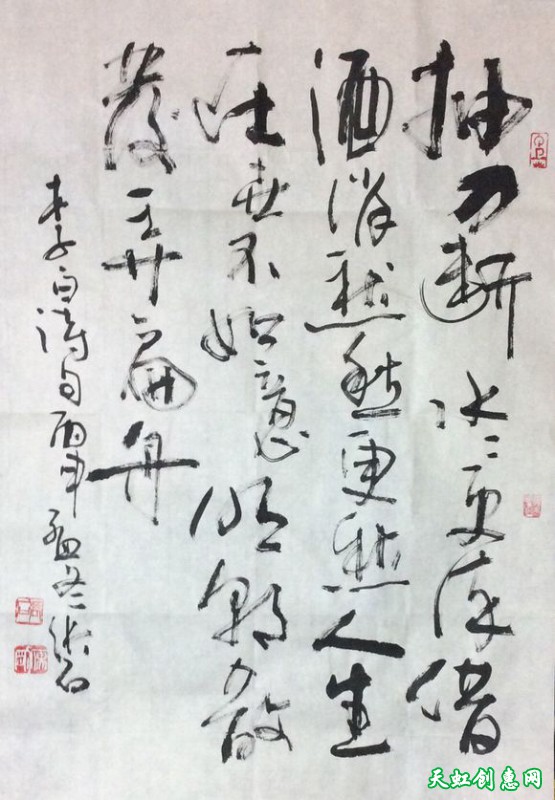 抽刀断水水更流借
酒消愁愁更愁人生
在世不如意明朝散
發弄扁舟
李白诗句丙申孟冬
天虹创惠网